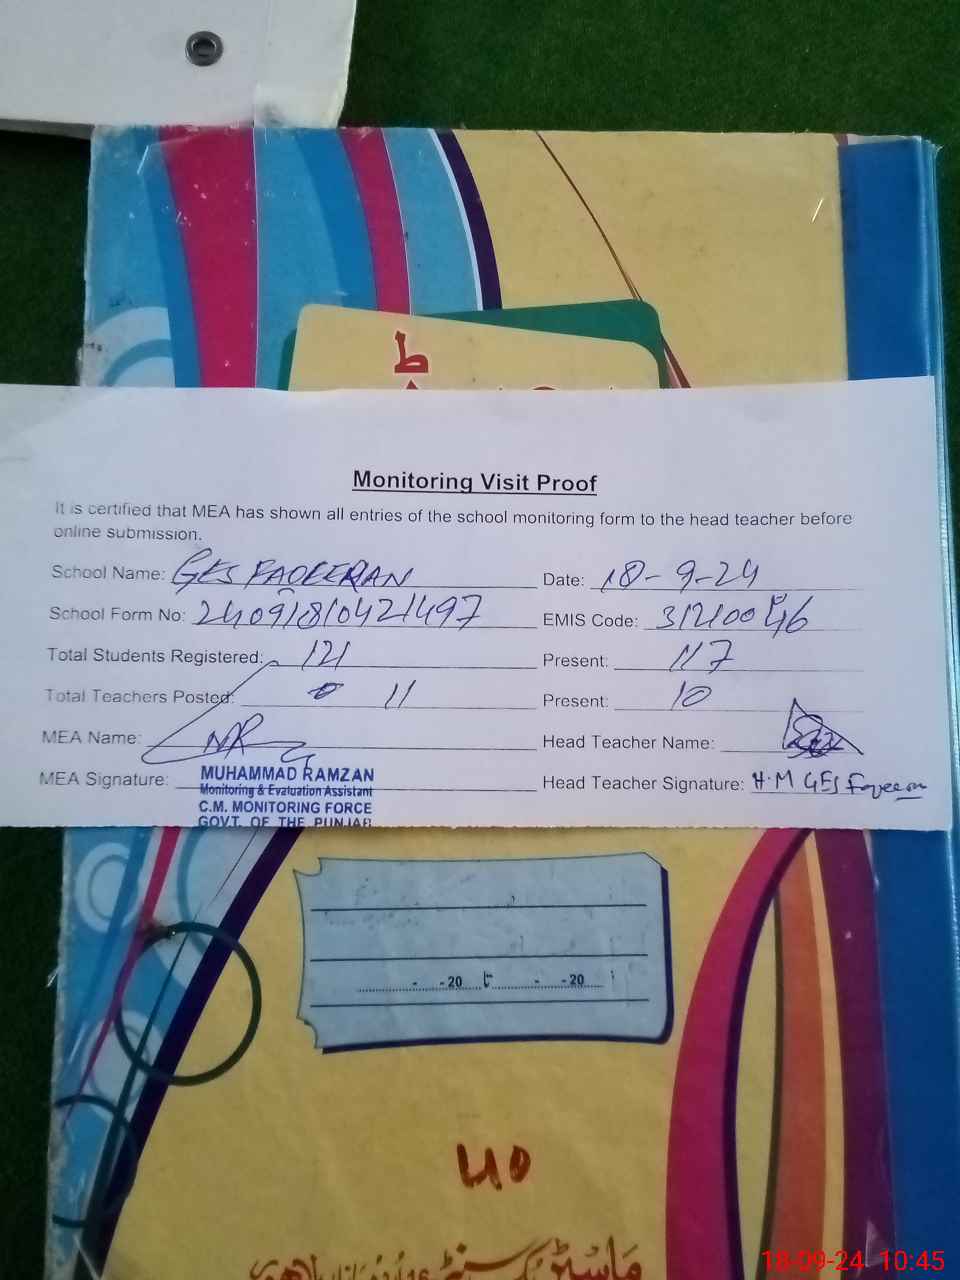 ط
Monitoring Visit Proof
It is certified that MEA has shown all entries of the school monitoring form to the head teacher before
online submission.
School Name: GES FAQEERAN Date: 18-9-24
School Form No: 24091810421497 EMIS Code:
Total Students Registered: 121 Present: 117
Total Teachers Posted: 11 Present: 10
MEA Name: MR Head Teacher Name:
MEA Signature: Head Teacher Signature: H.M GES Faqeeran
MUHAMMAD RAMZAN
Monitoring & Evaluation Assistant
C.M. MONITORING FORCE
GOVT. OF THE PUNJAB
- -20 تا - -20
18-09-24 10:45